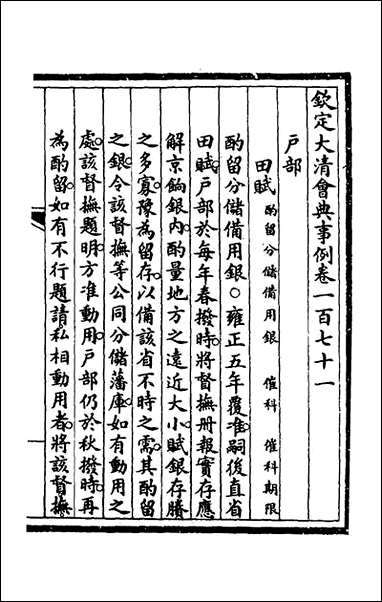 欽定大清會典事例卷一百七十一
戶部
田賦 酌留分儲備用銀 催科 催科期限
酌留分儲備用銀○雍正五年覆准嗣後直省
田賦戶部於每年春撥時將督撫冊報實存應
解京餉銀內酌量地方之遠近大小賦銀存賸
之多寡豫為留存以備該省不時之需其酌留
之銀令該督撫等公同分儲藩庫如有動用之
處該督撫題明方准動用戶部仍於秋撥時再
為酌留如有不行題請私相動用者將該督撫